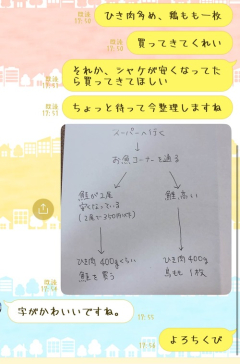 ひき肉多め、鶏もも一枚
既読
17:50
買ってきてくれい
既読
17:50
それか、シャケが安くなってたら買ってきてほしい
既読
17:51
ちょっと待って今整理しますね
既読
17:51
スーパーへ行く
お魚コーナーを通る
鮭が2尾
安くなっている
(2尾で350円以下)
鮭、高い
ひき肉 400gくらい
鮭を買う
ひき肉 400g
鳥もも 1枚
既読
字がかわいいですね。
17:55
よろちくび
既読